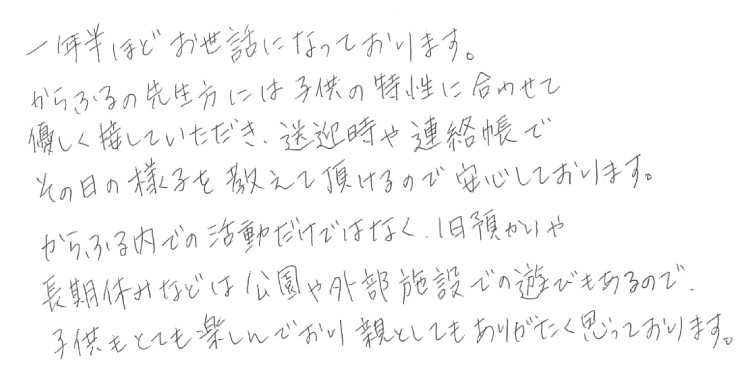 一年半ほどお世話になっております。
からふるの先生方には子供の特性に合わせて
優しく接していただき、送迎時や連絡帳で
その日の様子を教えて頂けるので安心しております。
からふる内での活動だけではなく、1日預かりや
長期休みなどは公園や外部施設での遊びもあるので、
子供もとても楽しんでおり親としてもありがたく思っております。